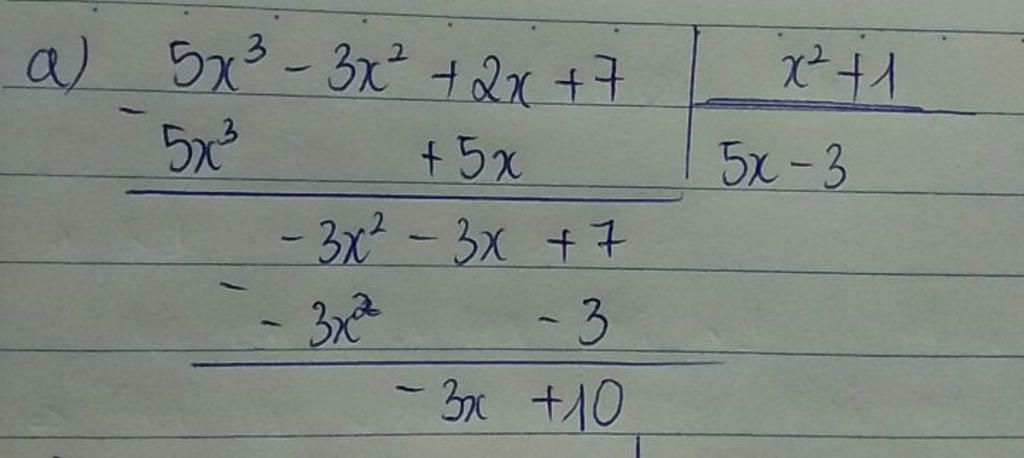 a) 5x³ - 3x² + 2x + 7 | x² + 1
- 5x³ + 5x | 5x - 3
- 3x² - 3x + 7
- - 3x² - 3
- 3x + 10